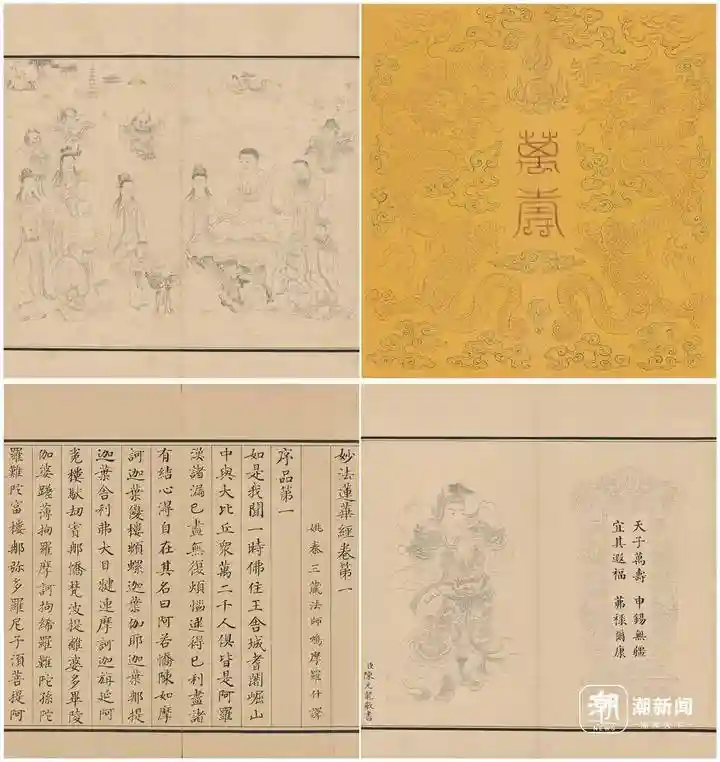 萬壽
妙法蓮華經卷第一
姚秦三藏法師鳩摩羅什譯
序品第一
如是我聞一時佛住王舍城耆闍崛山
中與大比丘衆萬二千人俱皆是阿羅
漢諸漏已盡無復煩惱逮得已利盡諸
有結心得自在其名曰阿若憍陳如摩
訶迦葉優樓頻螺迦葉伽耶迦葉那提
迦葉舍利弗大目犍連摩訶迦旃延阿
㝹樓馱劫賓那憍梵波提離婆多畢陵
伽婆蹉薄拘羅摩訶拘絺羅難陀孫陀
羅難陀富樓那弥多羅尼子須菩提阿
天子萬壽 申錫無疆
宜其遐福 茀祿爾康
臣陳元龍敬書
潮
NEWS
潮新闻